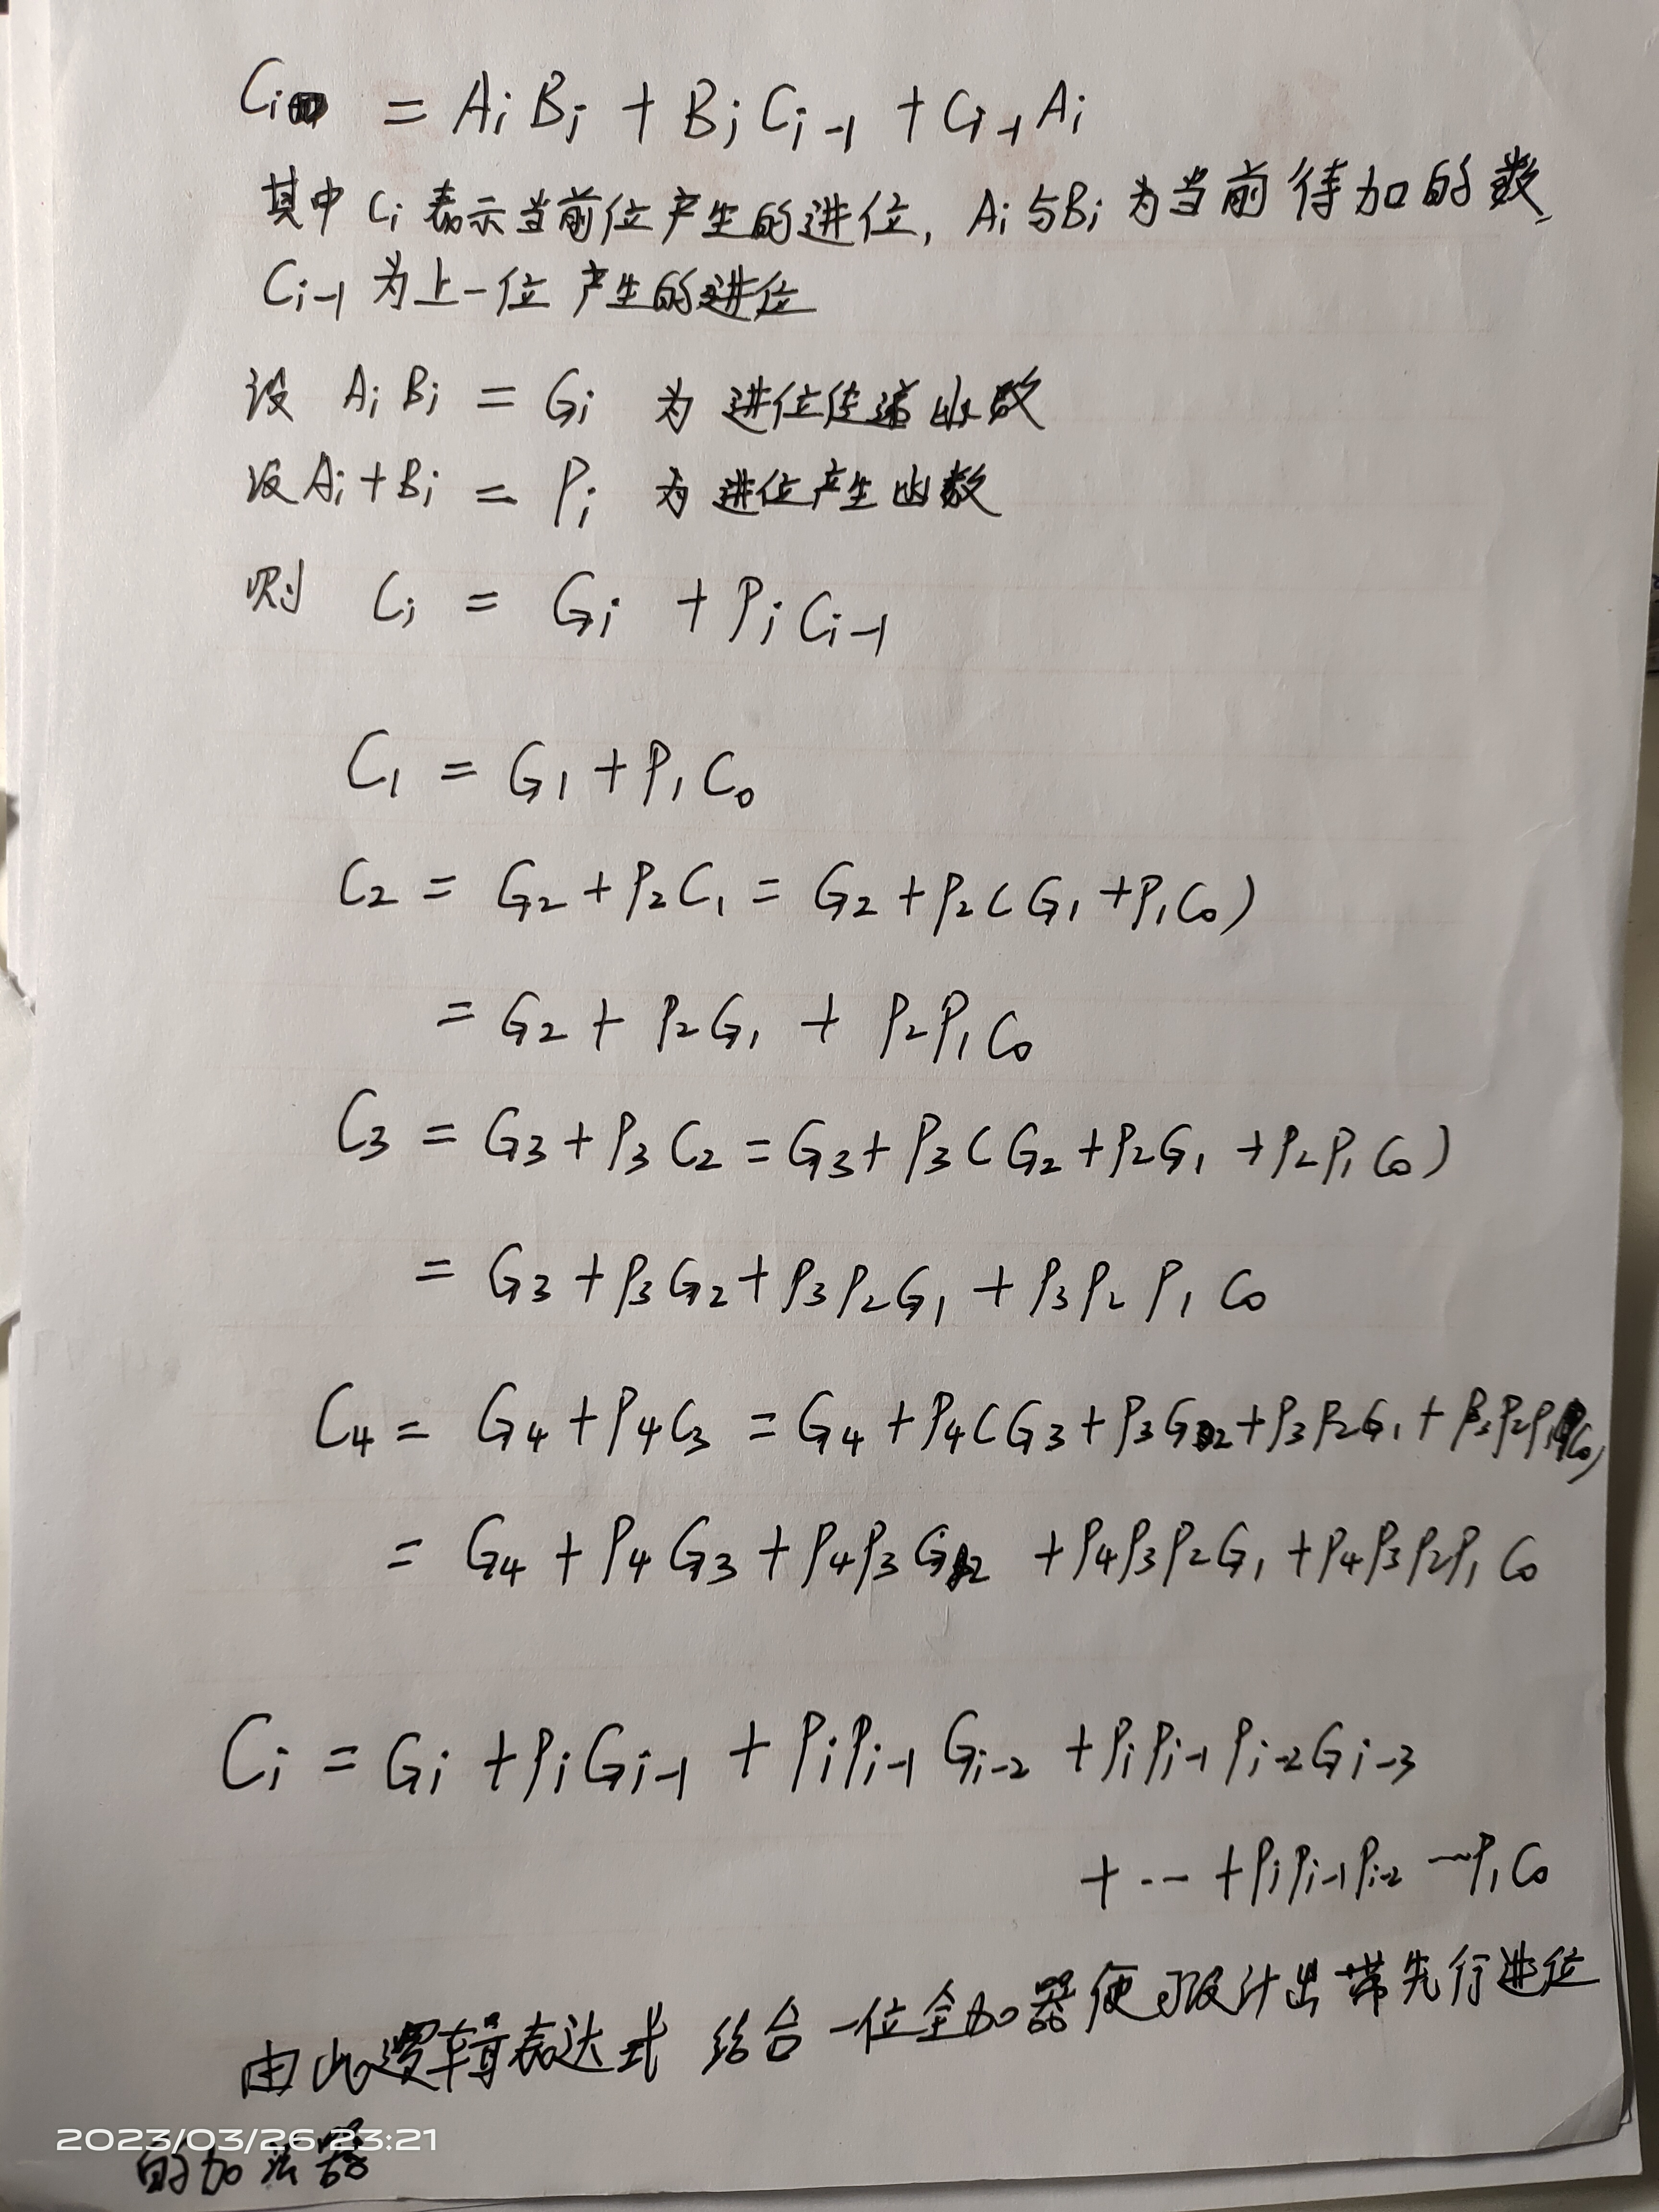 Ci = AiBi + BiCi-1 + Ci-1Ai
其中Ci表示当前位产生的进位，Ai与Bi为当前待加的数，
Ci-1为上一位产生的进位
设 AiBi = Gi 为 进位传递函数
设Ai+Bi = Pi 为 进位产生函数
则 Ci = Gi + PiCi-1
C1 = G1 + P1C0
C2 = G2 + P2C1 = G2 + P2(G1 + P1C0)
= G2 + P2G1 + P2P1C0
C3 = G3 + P3C2 = G3 + P3(G2 + P2G1 + P2P1C0)
= G3 + P3G2 + P3P2G1 + P3P2P1C0
C4 = G4 + P4C3 = G4 + P4(G3 + P3G2 + P3P2G1 + P3P2P1C0)
= G4 + P4G3 + P4P3G2 + P4P3P2G1 + P4P3P2P1C0
Ci = Gi + PiGi-1 + PiPi-1Gi-2 + PiPi-1Pi-2Gi-3
+ … + PiPi-1Pi-2 … P1C0
由此逻辑表达式 结合一位全加器便可设计出带先行进位
2023/03/26 23:21
的加法器